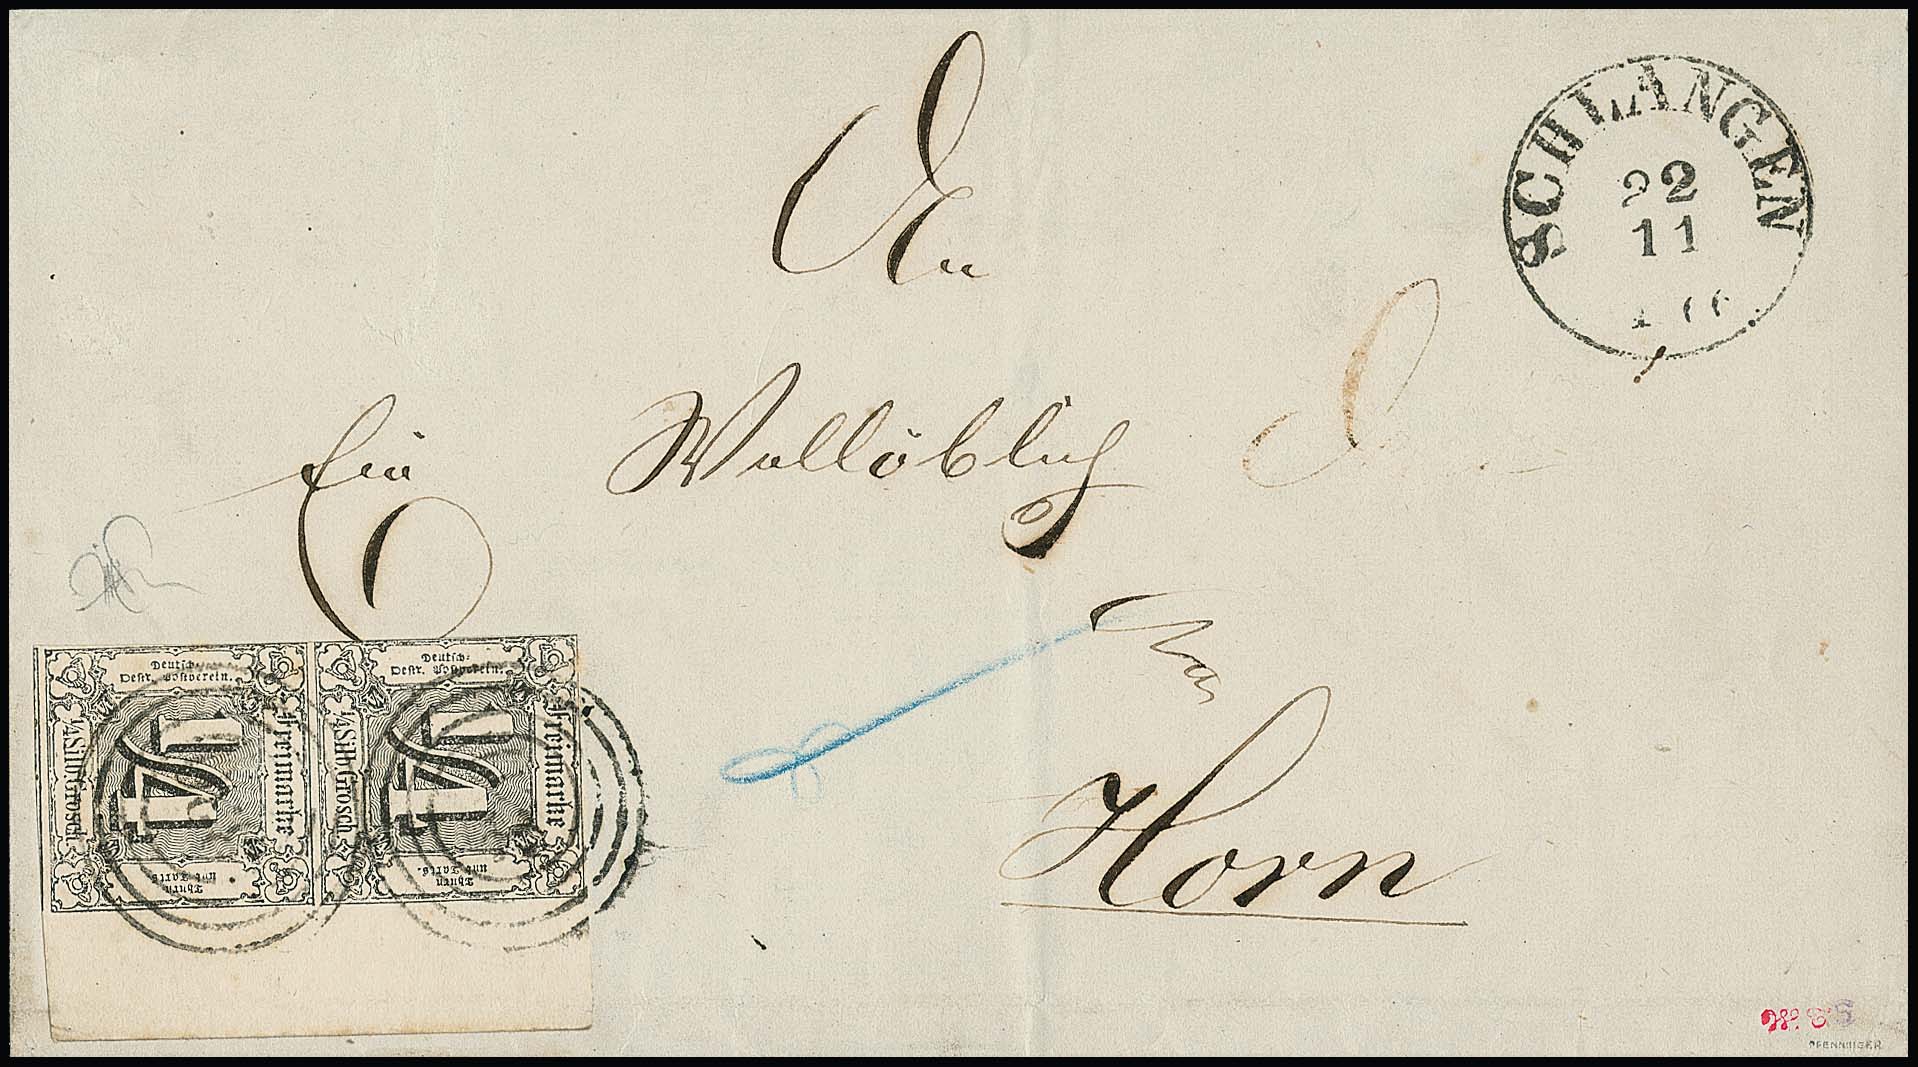 SCHLANGEN
22
11
An
Ein Wollöblich
Horn
Deutsch-
Oestr. Postverein.
¼ Silb. Grosch.
1/4
Freimarke
Thurn
und Taxis.
Deutsch-
Oestr. Postverein.
¼ Silb. Grosch.
1/4
Freimarke
Thurn
und Taxis.
PFENNINGER